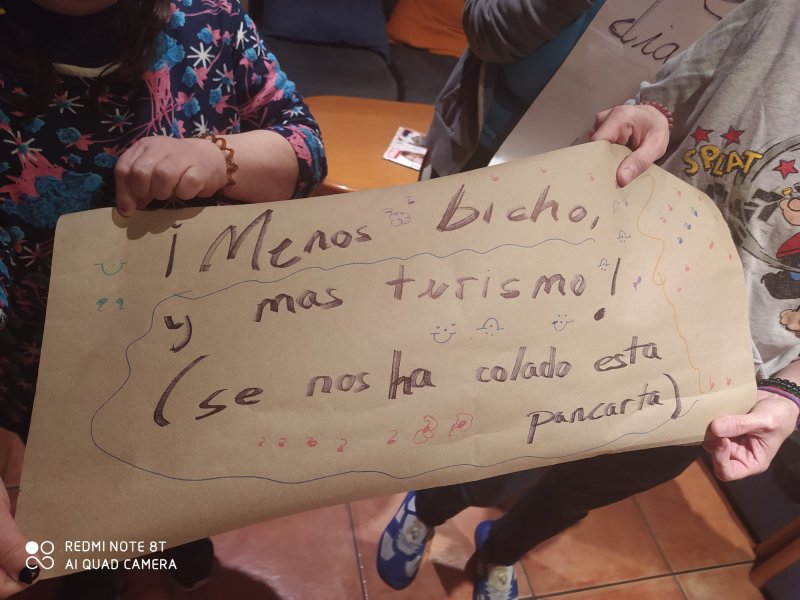 dia
SPLAT
¡Menos bicho,
y mas turismo!
(se nos ha colado esta
pancarta)
REDMI NOTE 8T
AI QUAD CAMERA